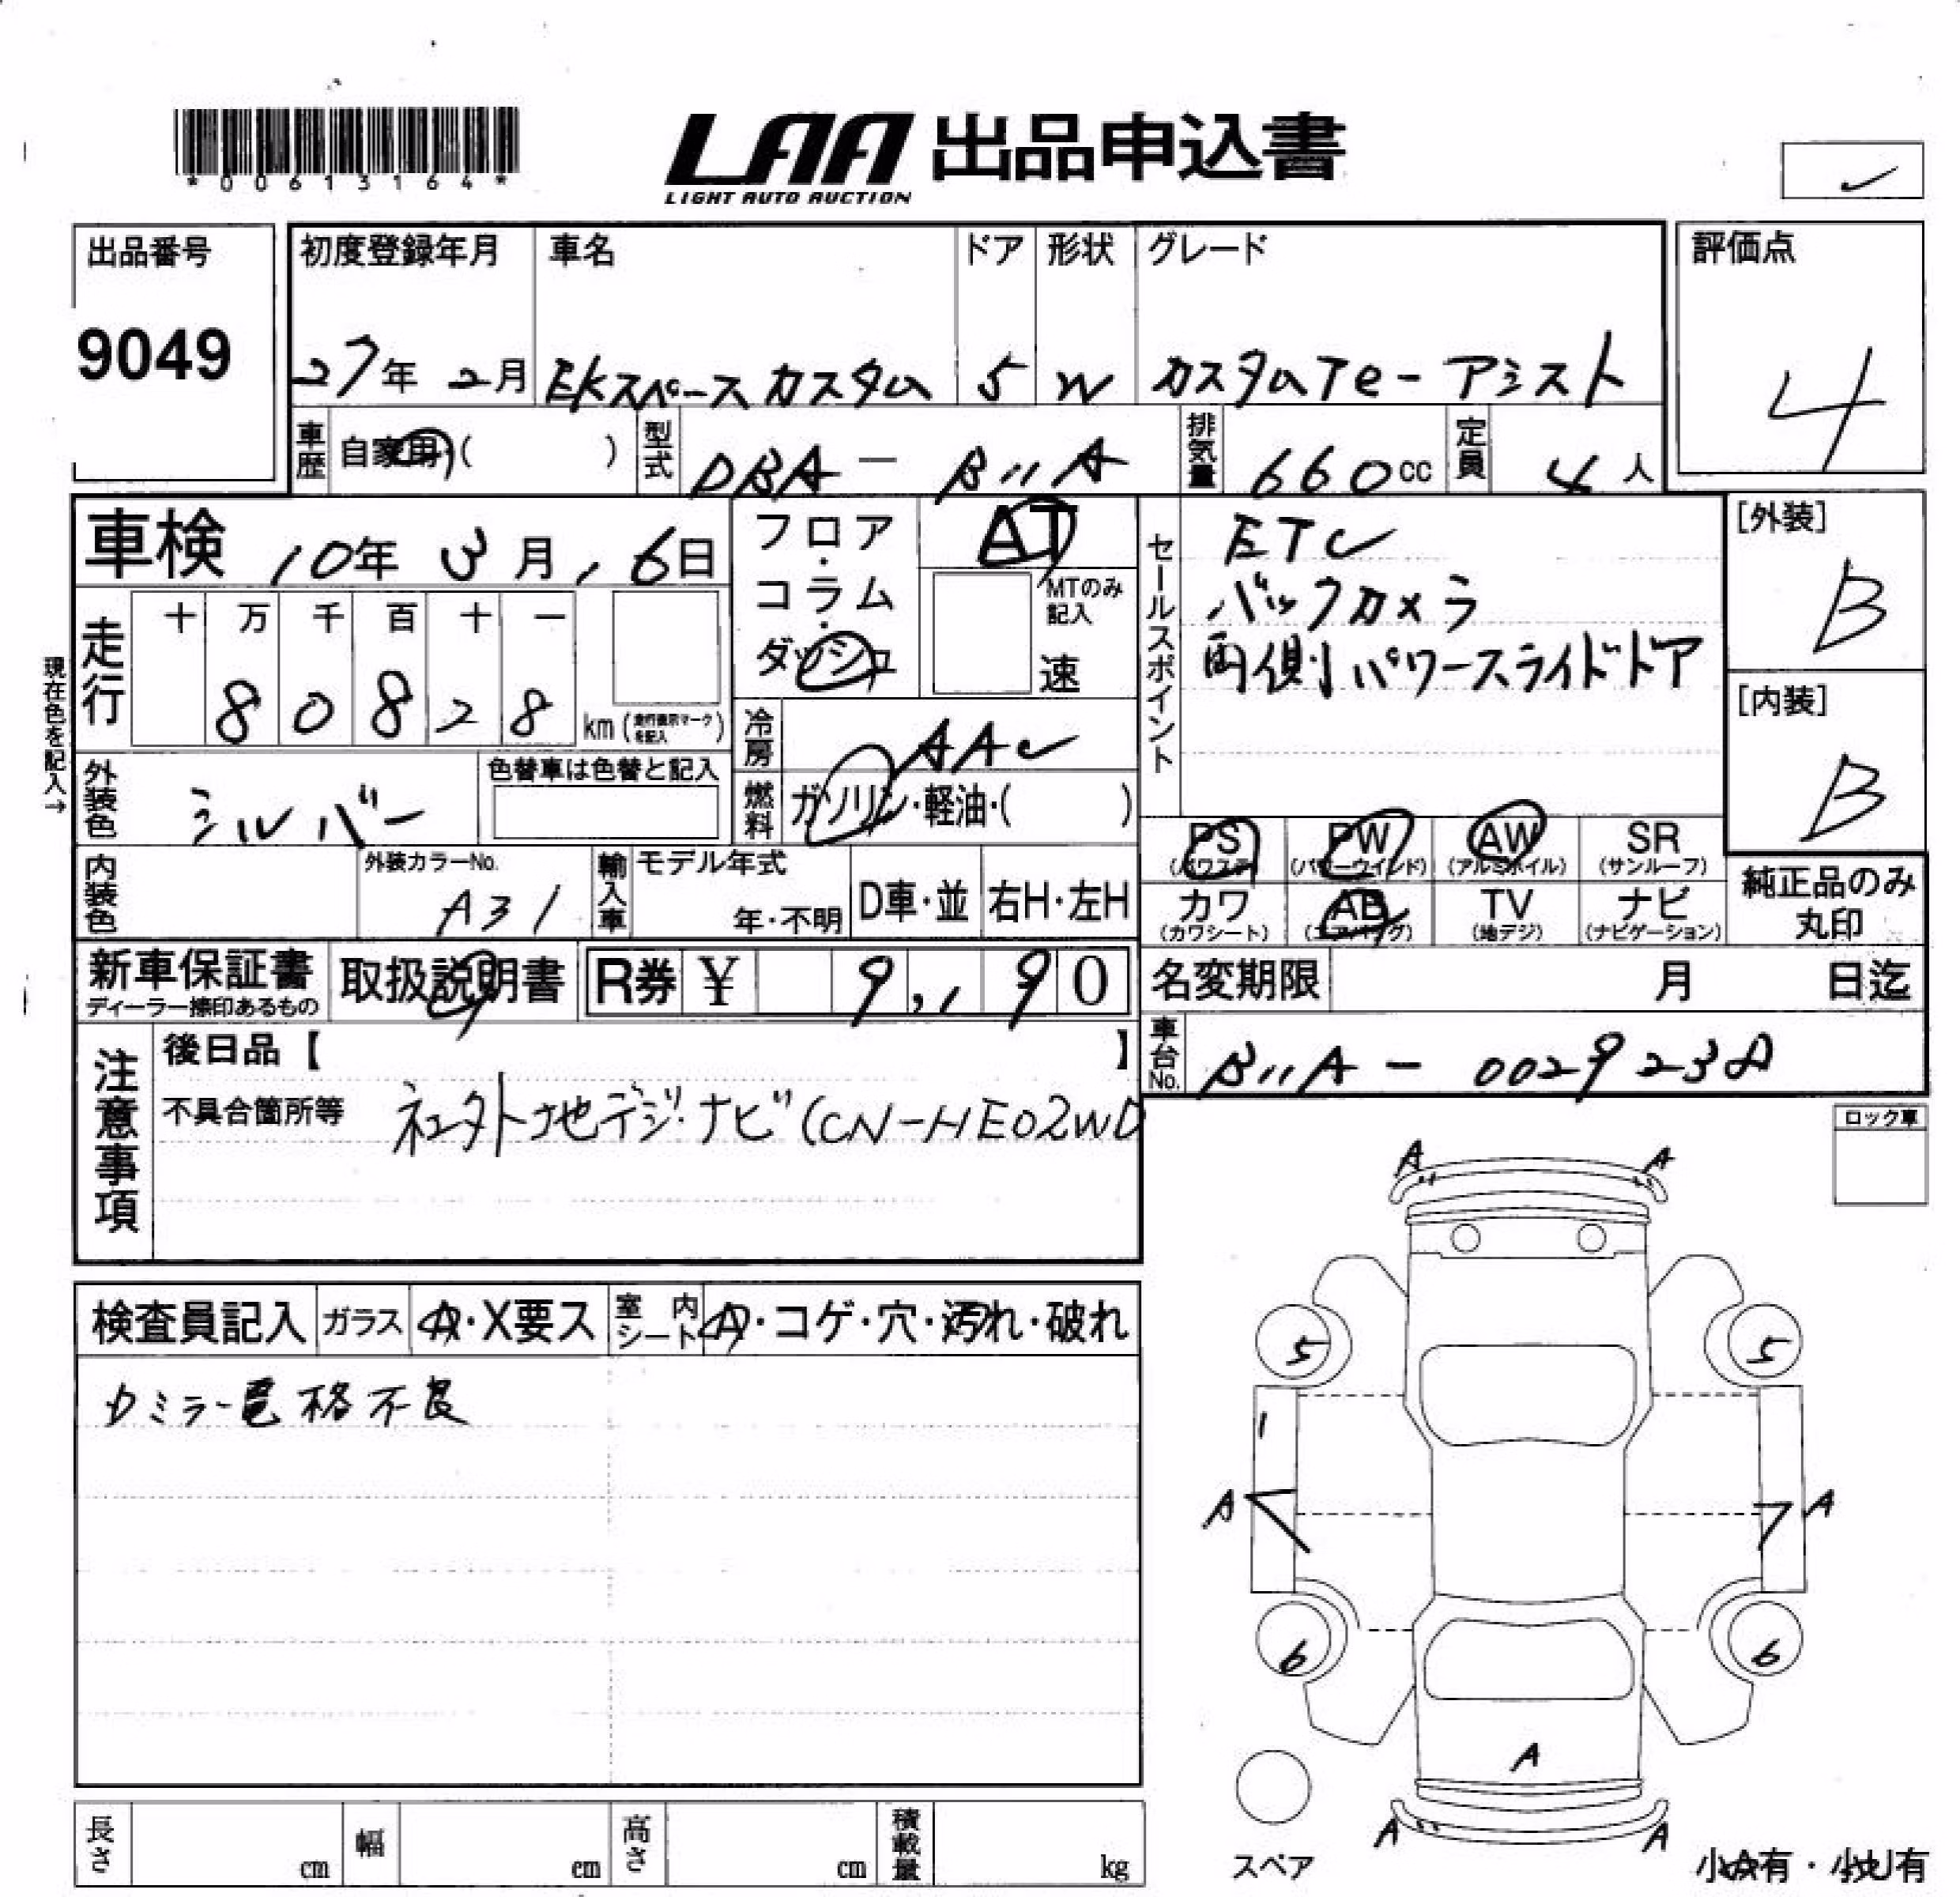 *00613164*
LAA 出品申込書
LIGHT AUTO AUCTION
出品番号
9049
初度登録年月
27年 2月
車名
EKスペースカスタム
ドア
5
形状
W
グレード
カスタムTe-アシスト
評価点
4
車歴
自家用・( )
型式
DBA - B11A
排気量
660cc
定員
4人
車検 10年 3月 16日
走行
十 万 千 百 十 一
8 0 8 2 8
km(走行表示マークを記入)
現在色を記入→
外装色
シルバー
色替車は色替と記入
内装色
外装カラーNo.
A31
輸入車
モデル年式
年・不明
D車・並
右H・左H
フロア・コラム・ダッシュ
AT
MTのみ記入
速
冷房
AAC
燃料
ガソリン・軽油・( )
セールスポイント
ETC
バックカメラ
両側パワースライドドア
[外装]
B
[内装]
B
PS
(パワステ)
PW
(パワーウインド)
AW
(アルミホイル)
SR
(サンルーフ)
カワ
(カワシート)
AB
(エアバッグ)
TV
(地デジ)
ナビ
(ナビゲーション)
純正品のみ
丸印
新車保証書
ディーラー捺印あるもの
取扱説明書
R券 ¥ 9,190
名変期限 月 日迄
車台No.
B11A - 0029238
注意事項
後日品【 】
不具合箇所等
社外地デジナビ(CN-HE02WD
ロック車
検査員記入
ガラス
A・X要ス
室内シート
A・コゲ・穴・汚れ・破れ
カミラー電格不良
A A
5 5
1
A A
6 6
A
A A
スペア
小A有・小U有
長さ cm
幅 cm
高さ cm
積載量 kg